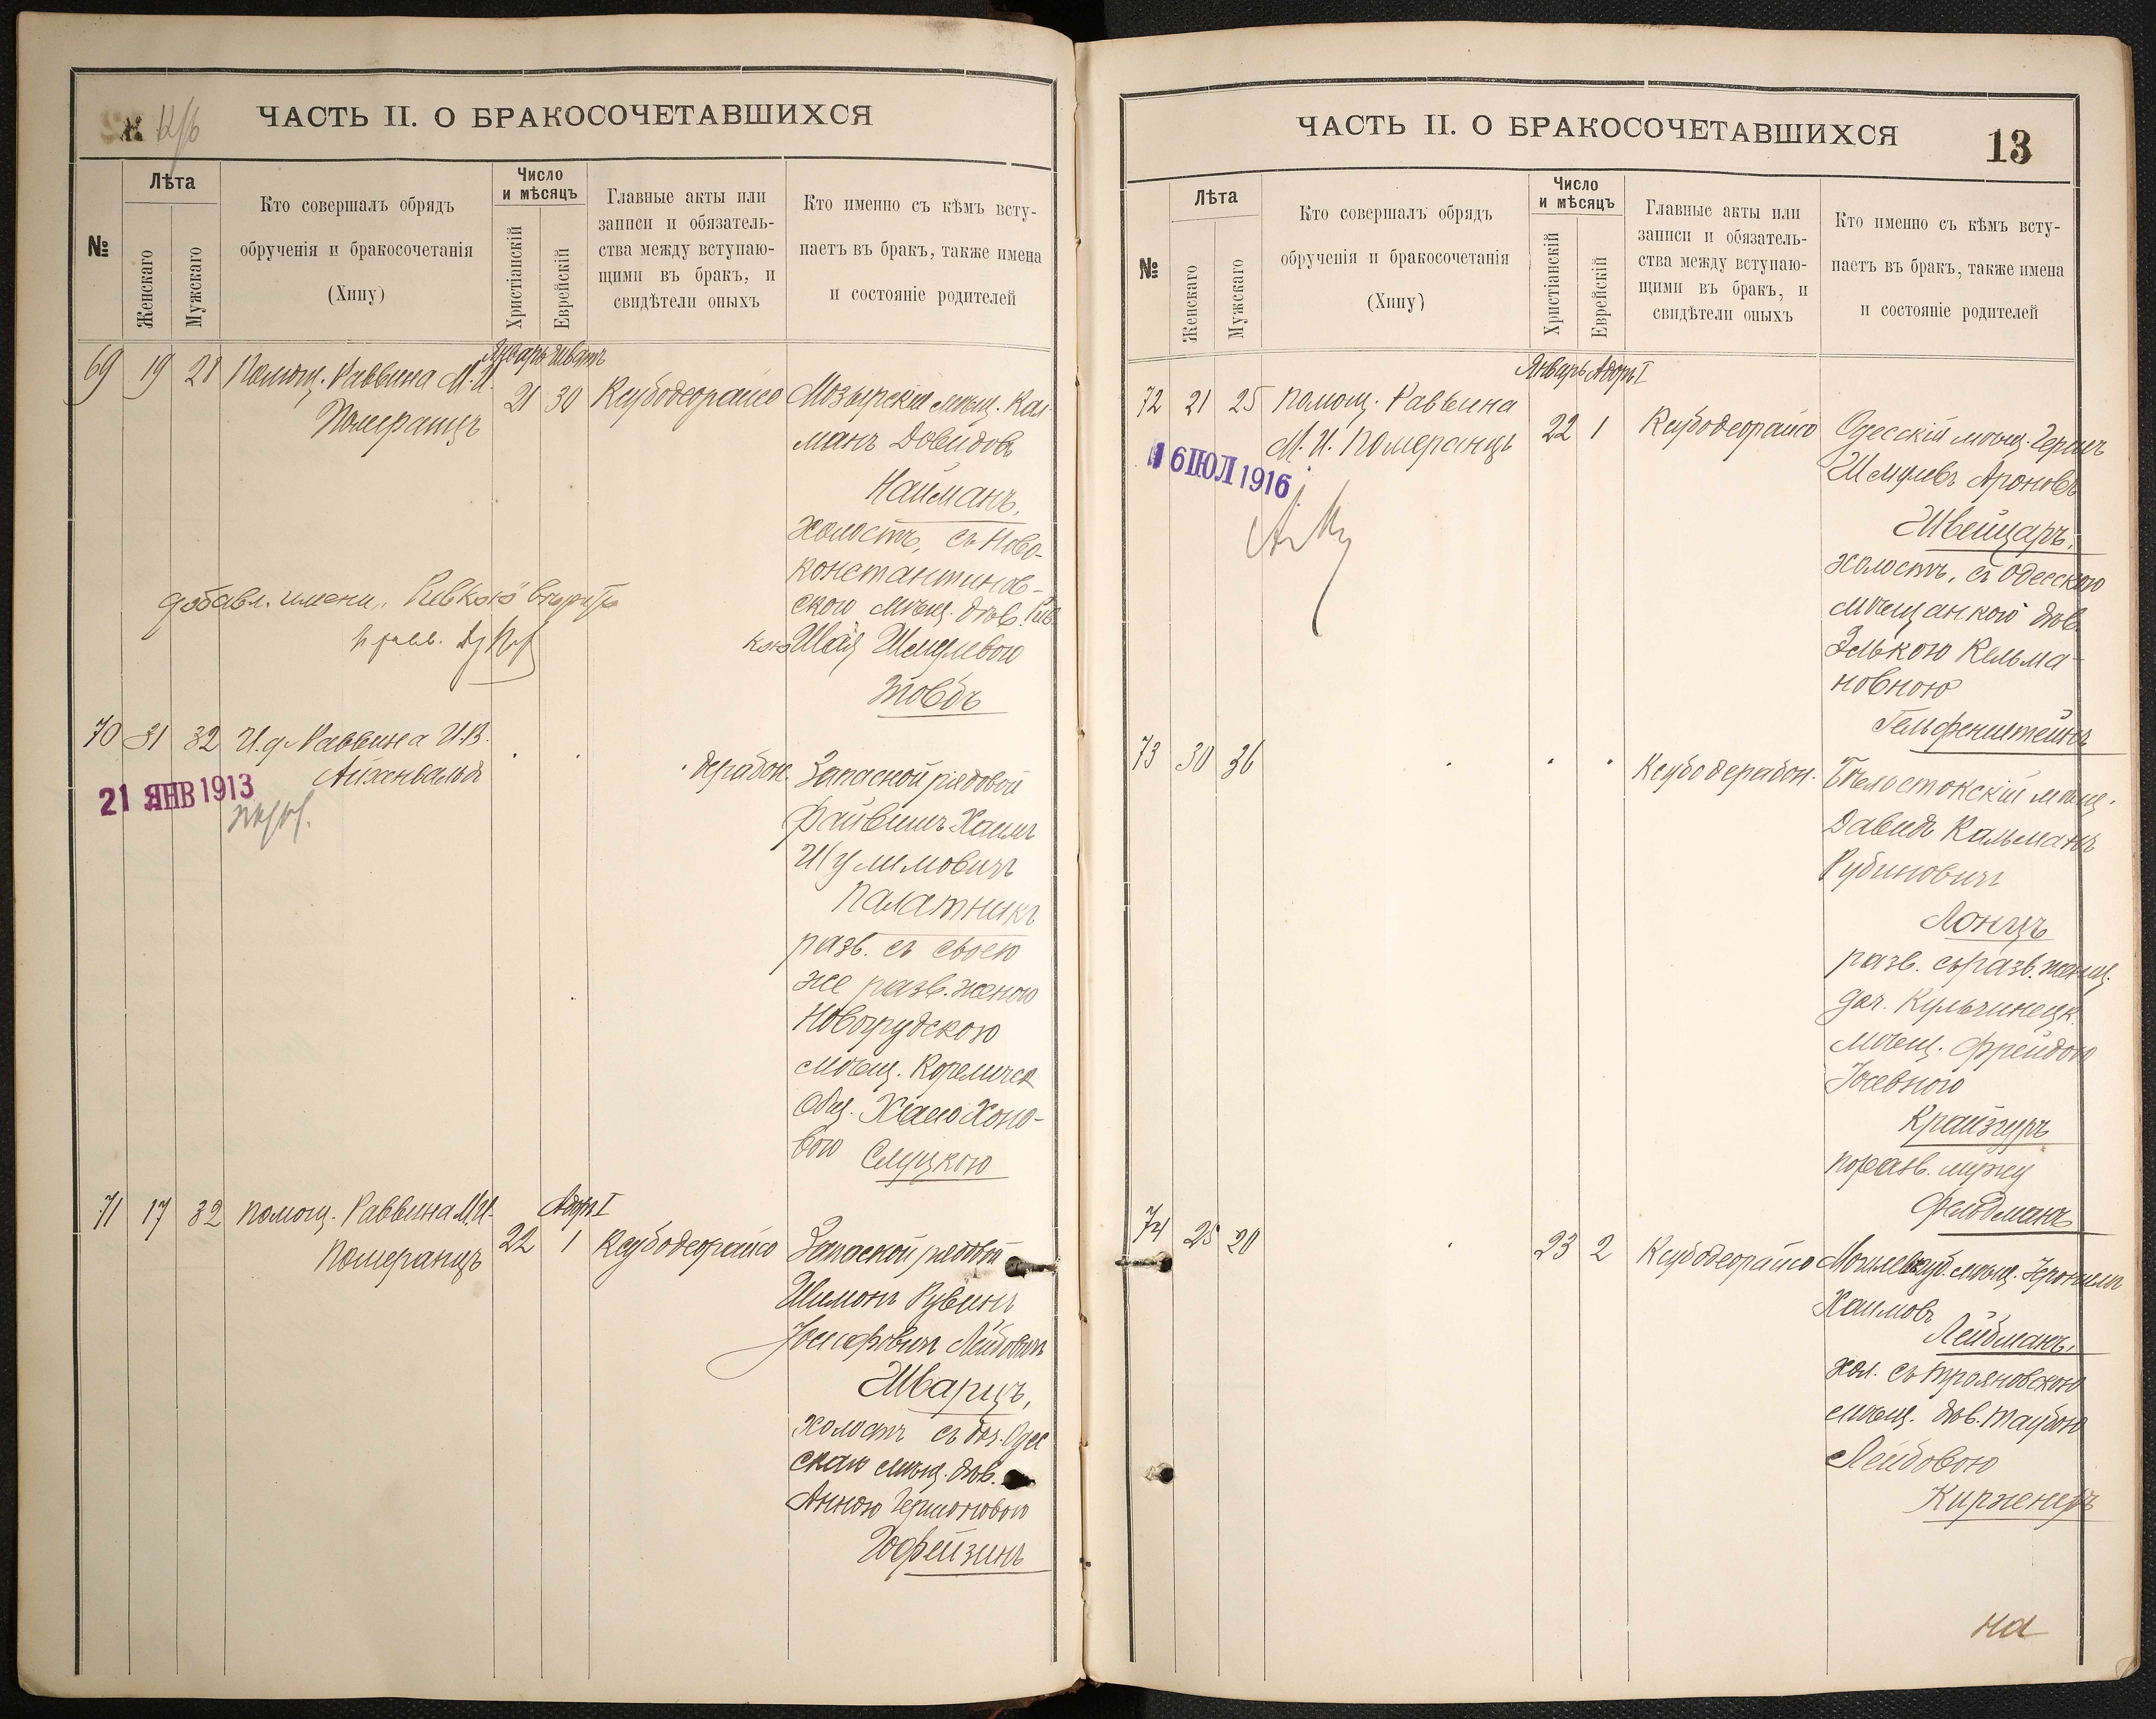 ЧАСТЬ II. О БРАКОСОЧЕТАВШИХСЯ
№
Лѣта
Женскаго
Мужскаго
Кто совершалъ обрядъ
обрученія и бракосочетанія
(Хипу)
Число
и мѣсяцъ
Христіанскій
Еврейскій
Главные акты или
записи и обязатель-
ства между вступаю-
щими въ бракъ, и
свидѣтели оныхъ
Кто именно съ кѣмъ всту-
паетъ въ бракъ, также имена
и состояніе родителей
Январь Шватъ
69 19 28 Помощ. Раввина М.И.
Померанцъ
21 30 Ксубодеорайсо
Мозырскій мѣщ. Кал
манъ Довидовъ
Найманъ,
холостъ, съ Ново-
константинов-
скою мѣщ. дѣв. Рив
кою Шаей Шмулевою
Товбъ
добавл. имени „Ривкою"
70 31 32 И.д. Раввина И.В.
Айхенвальдъ
21 ЯНВ 1913
дерабон.
Запасной рядовой
Файвишъ Хаимъ
Шулимовичъ
Палатникъ
разв. съ своею
же разв. женою
Новогрудскою
мѣщ. Кореличск
общ. Хаею Хоно-
вою Слуцкою
Адаръ I
71 17 32 Помощ. Раввина М.И.
Померанцъ
22 1 Ксубодеорайсо
Запасной рядовой
Шимонъ Рувинъ
Іосифовичъ Лейбовичъ
Шварцъ,
холостъ съ доч. Одес
скаго мѣщ. дѣв.
Анною Гершоновою
Гофейзинъ
ЧАСТЬ II. О БРАКОСОЧЕТАВШИХСЯ
13
№
Лѣта
Женскаго
Мужскаго
Кто совершалъ обрядъ
обрученія и бракосочетанія
(Хипу)
Число
и мѣсяцъ
Христіанскій
Еврейскій
Главные акты или
записи и обязатель-
ства между вступаю-
щими въ бракъ, и
свидѣтели оныхъ
Кто именно съ кѣмъ всту-
паетъ въ бракъ, также имена
и состояніе родителей
Январь Адаръ I
72 21 25 Помощ. Раввина
М.И. Померанцъ
22 1 Ксубодеорайсо
6 ІЮЛ 1916
Одесскій мѣщ. Гершъ
Шмулевъ Ароновъ
Швейцаръ,
холостъ, съ Одесскою
мѣщанкой дѣв.
Элькою Кельма-
новною
Гельфенштейнъ
73 30 36
Ксубодерабон.
Бѣлостокскій мѣщ.
Давидъ Кальманъ
Рубиновичъ
Лонцъ
разв. съ разв. женщ.
доч. Кульчинецк.
мѣщ. Фрейдою
Іосевною
Крайзгуръ
по разв. мужу
Фельдманъ
74 25 20
23 2 Ксубодеорайсо
Могилевгуб. мѣщ. Іерохимъ
Хаимовъ
Лейбманъ,
хол. съ Трояновскою
мѣщ. дѣв. Таубою
Лейбовою
Кирженеръ
на